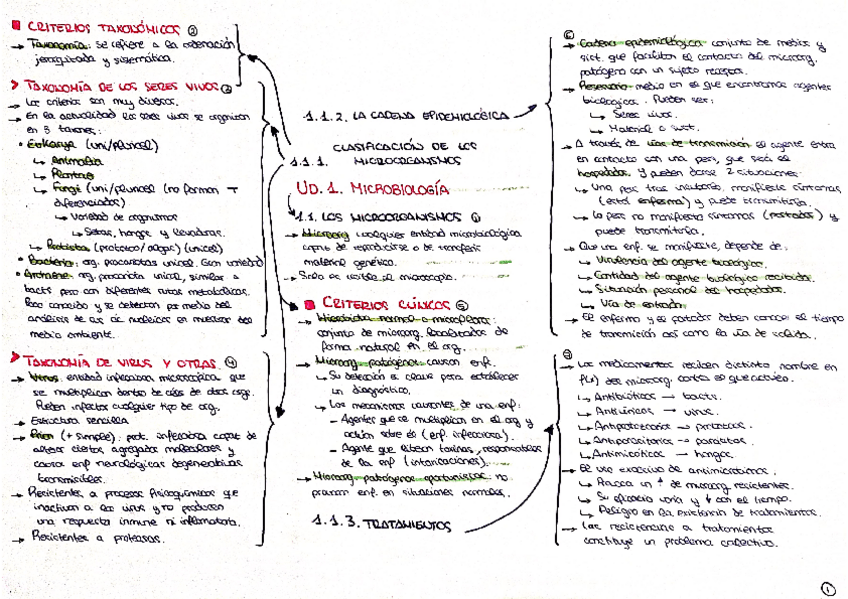 CRITERIOS TAXONÓMICOS ②
→ Taxonomía: se refiere a la ordenación
jerarquizada y sistemática.
> TAXONOMÍA DE LOS SERES VIVOS ③
→ Los criterios son muy diversos.
→ En la actualidad los seres vivos se organizan
en 3 taxones:
• Eukarya (uni/pluricel)
↳ Animalia
↳ Plantae
↳ Fungi (uni/pluricel (no forman T
diferenciados)
↳ Variedad de organismos
↳ Setas, hongos y levaduras.
↳ Protista (protozoo/algas) (unicel)
• Bacteria: org. procariotas unicel. Gran variedad
• Archaea: org. procariota unicel, similar a
bacts pero con diferentes rutas metabólicas.
Poco conocido y se detectan por medio del
análisis de sus ác. nucleicos en muestras del
medio ambiente.
> TAXONOMÍA DE VIRUS Y OTRAS ④
→ Virus: entidad infecciosa microscópica que
se multiplican dentro de céls de otros orgs.
Pueden infectar cualquier tipo de org.
→ Estructura sencilla
→ Prion (+ simple): prot. infecciosa capaz de
alterar ciertos agregados moleculares y
causa enf neurológicas degenerativas
transmisibles.
→ Resistentes a procesos fisicoquímicos que
inactivan a los virus y no producen
una respuesta inmune ni inflamatoria.
→ Resistentes a proteasas.
1.1.2. LA CADENA EPIDEMIOLÓGICA
CLASIFICACIÓN DE LOS
1.1.1. MICROORGANISMOS
UD.1. MICROBIOLOGÍA
1.1. LOS MICROORGANISMOS ①
→ Microorg: cualquier entidad microbiológica
capaz de reproducirse o de transferir
material genético.
→ Solo es visible al microscopio.
CRITERIOS CLÍNICOS ⑤
→ Microbiota normal o microflora:
conjunto de microorg. localizados de
forma natural en el org.
→ Microorg. patógenos: causan enf.
↳ Su detección es clave para establecer
un diagnóstico.
↳ Los mecanismos causantes de una enf:
- Agentes que se multiplican en el org y
actúan sobre él (enf. infecciosa).
- Agente que liberan toxinas, responsables
de la enf (intoxicaciones).
→ Microorg patógenos oportunistas: no
provocan enf. en situaciones normales.
1.1.3. TRATAMIENTOS
⑥
→ Cadena epidemiológica: conjunto de medios y
sist. que facilitan el contacto del microorg.
patógeno con un sujeto receptor.
→ Reservorio: medio en el que encontramos agentes
biológicos. Pueden ser:
↳ Seres vivos.
↳ Material o sust.
→ A través de vías de transmisión el agente entra
en contacto con una pers, que será el
hospedador. Y pueden darse 2 situaciones:
↳ Una pers tras incubarlo, manifieste síntomas
(está enferma) y puede transmitirla.
↳ La pers no manifiesta síntomas (portador) y
puede transmitirla.
→ Que una enf. se manifieste, depende de:
↳ Virulencia del agente biológico.
↳ Cantidad del agente biológico recibida.
↳ Situación personal del hospedador.
↳ Vía de entrada.
→ El enfermo y el portador deben conocer el tiempo
de transmisión así como la vía de salida.
⑦
→ Los medicamentos reciben distinto nombre en
f(x) del microorg. contra el que actúen.
↳ Antibióticos → bacts.
↳ Antivíricos → virus.
↳ Antiparasitarios → parásitos.
↳ Antimicóticos → hongos.
→ El uso excesivo de antimicrobianos.
↳ Provoca un ↑ de microorg resistentes.
↳ Su eficacia varía y ↓ con el tiempo.
↳ Peligro en la existencia de tratamientos.
→ Las resistencias a tratamientos
constituye un problema colectivo.
①